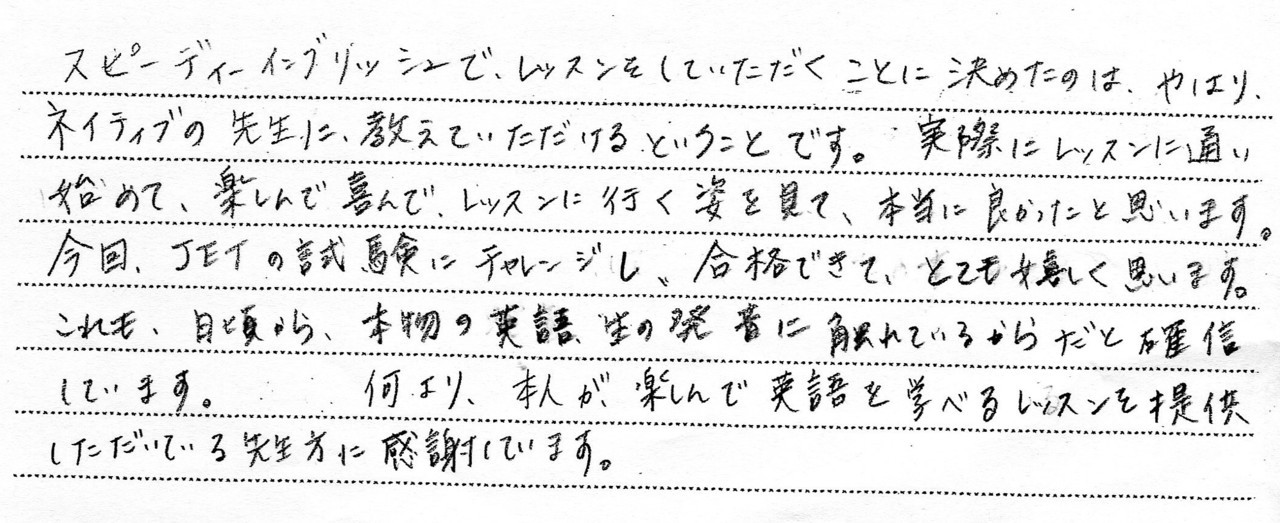 スピーディーイングリッシュで、レッスンをしていただくことに決めたのは、やはり、
ネイティブの先生に、教えていただけるということです。 実際にレッスンに通い
始めて、楽しんで喜んで、レッスンに行く姿を見て、本当に良かったと思います。
今回、JETの試験にチャレンジし、合格できて、とても嬉しく思います。
これも、日頃から、本物の英語、生の発音に触れているからだと確信
しています。 何より、本人が、楽しんで英語を学べるレッスンを提供
しただいている先生方に感謝しています。